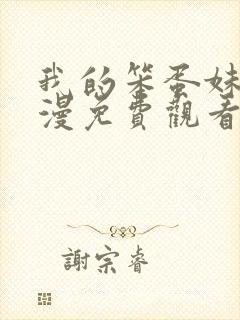 我的笨蛋妹
漫免費觀看
謝宗睿